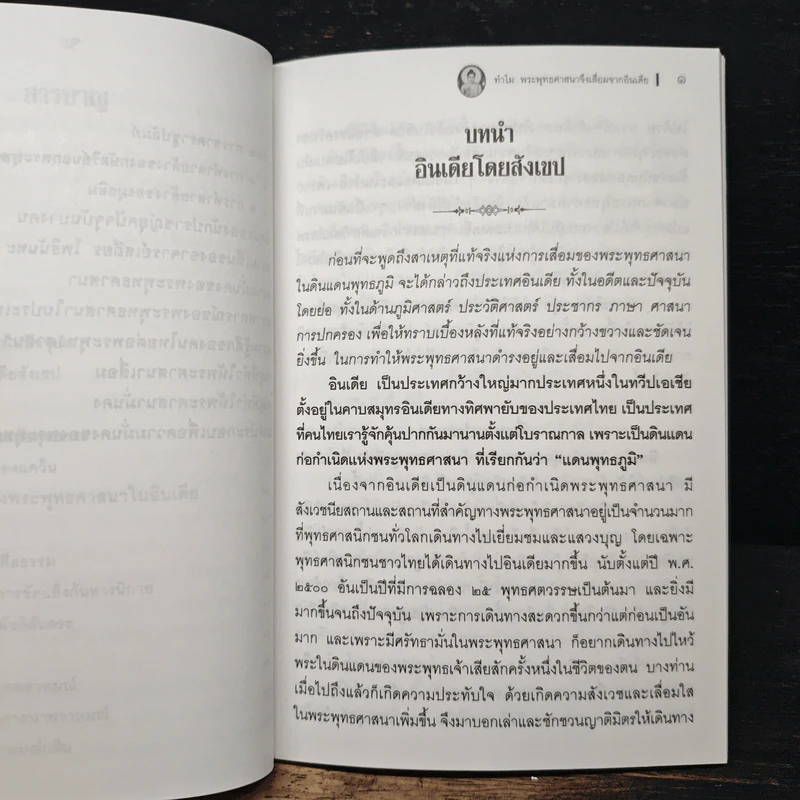 ทำไม พระพุทธศาสนาจึงเสื่อมจากอินเดีย | ๑
บทนำ
อินเดียโดยสังเขป
ก่อนที่จะพูดถึงสาเหตุที่แท้จริงแห่งการเสื่อมของพระพุทธศาสนา
ในดินแดนพุทธภูมิ จะได้กล่าวถึงประเทศอินเดีย ทั้งในอดีตและปัจจุบัน
โดยย่อ ทั้งในด้านภูมิศาสตร์ ประวัติศาสตร์ ประชากร ภาษา ศาสนา
การปกครอง เพื่อให้ทราบเบื้องหลังที่แท้จริงอย่างกว้างขวางและชัดเจน
ยิ่งขึ้น ในการทำให้พระพุทธศาสนาดำรงอยู่และเสื่อมไปจากอินเดีย
อินเดีย เป็นประเทศกว้างใหญ่มากประเทศหนึ่งในทวีปเอเชีย
ตั้งอยู่ในคาบสมุทรอินเดียทางทิศพายัพของประเทศไทย เป็นประเทศ
ที่คนไทยเรารู้จักคุ้นปากกันมานานตั้งแต่โบราณกาล เพราะเป็นดินแดน
ก่อกำเนิดแห่งพระพุทธศาสนา ที่เรียกกันว่า “แดนพุทธภูมิ”
เนื่องจากอินเดียเป็นดินแดนก่อกำเนิดพระพุทธศาสนา มี
สังเวชนียสถานและสถานที่สำคัญทางพระพุทธศาสนาอยู่เป็นจำนวนมาก
ที่พุทธศาสนิกชนทั่วโลกเดินทางไปเยี่ยมชมและแสวงบุญ โดยเฉพาะ
พุทธศาสนิกชนชาวไทยได้เดินทางไปอินเดียมากขึ้น นับตั้งแต่ปี พ.ศ.
๒๕๐๐ อันเป็นปีที่มีการฉลอง ๒๕ พุทธศตวรรษเป็นต้นมา และยิ่งมี
มากขึ้นจนถึงปัจจุบัน เพราะการเดินทางสะดวกขึ้นกว่าแต่ก่อนเป็นอัน
มาก และเพราะมีศรัทธามั่นในพระพุทธศาสนา ก็อยากเดินทางไปไหว้
พระในดินแดนของพระพุทธเจ้าเสียสักครั้งหนึ่งในชีวิตของตน บางท่าน
เมื่อไปถึงแล้วก็เกิดความประทับใจ ด้วยเกิดความสังเวชและเลื่อมใส
ในพระพุทธศาสนาเพิ่มขึ้น จึงมาบอกเล่าและชักชวนญาติมิตรให้เดินทาง